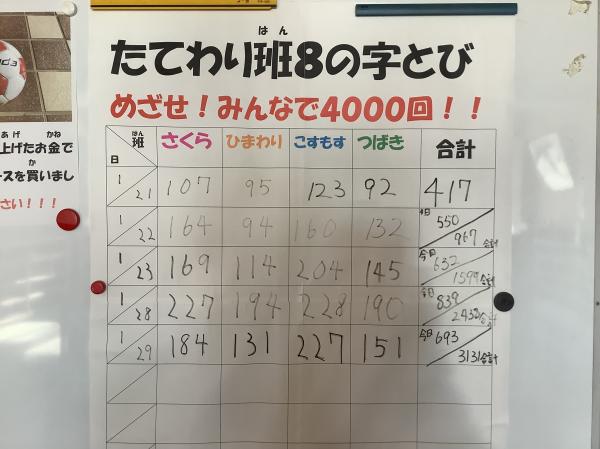 はん
たてわり班8の字とび
めざせ!みんなで4000回!!
あげ かね
上げたお金で
か
ースを買いまし
さい!!!
日 班 はん さくら ひまわり こすもす つばき 合計
1/21 107 95 123 92 417
1/22 164 94 160 132 今日 550 967 合計
1/23 169 114 204 145 今日 632 1599 合計
1/28 227 194 228 190 今日 839 2438 合計
1/29 184 131 227 151 今日 693 3131 合計